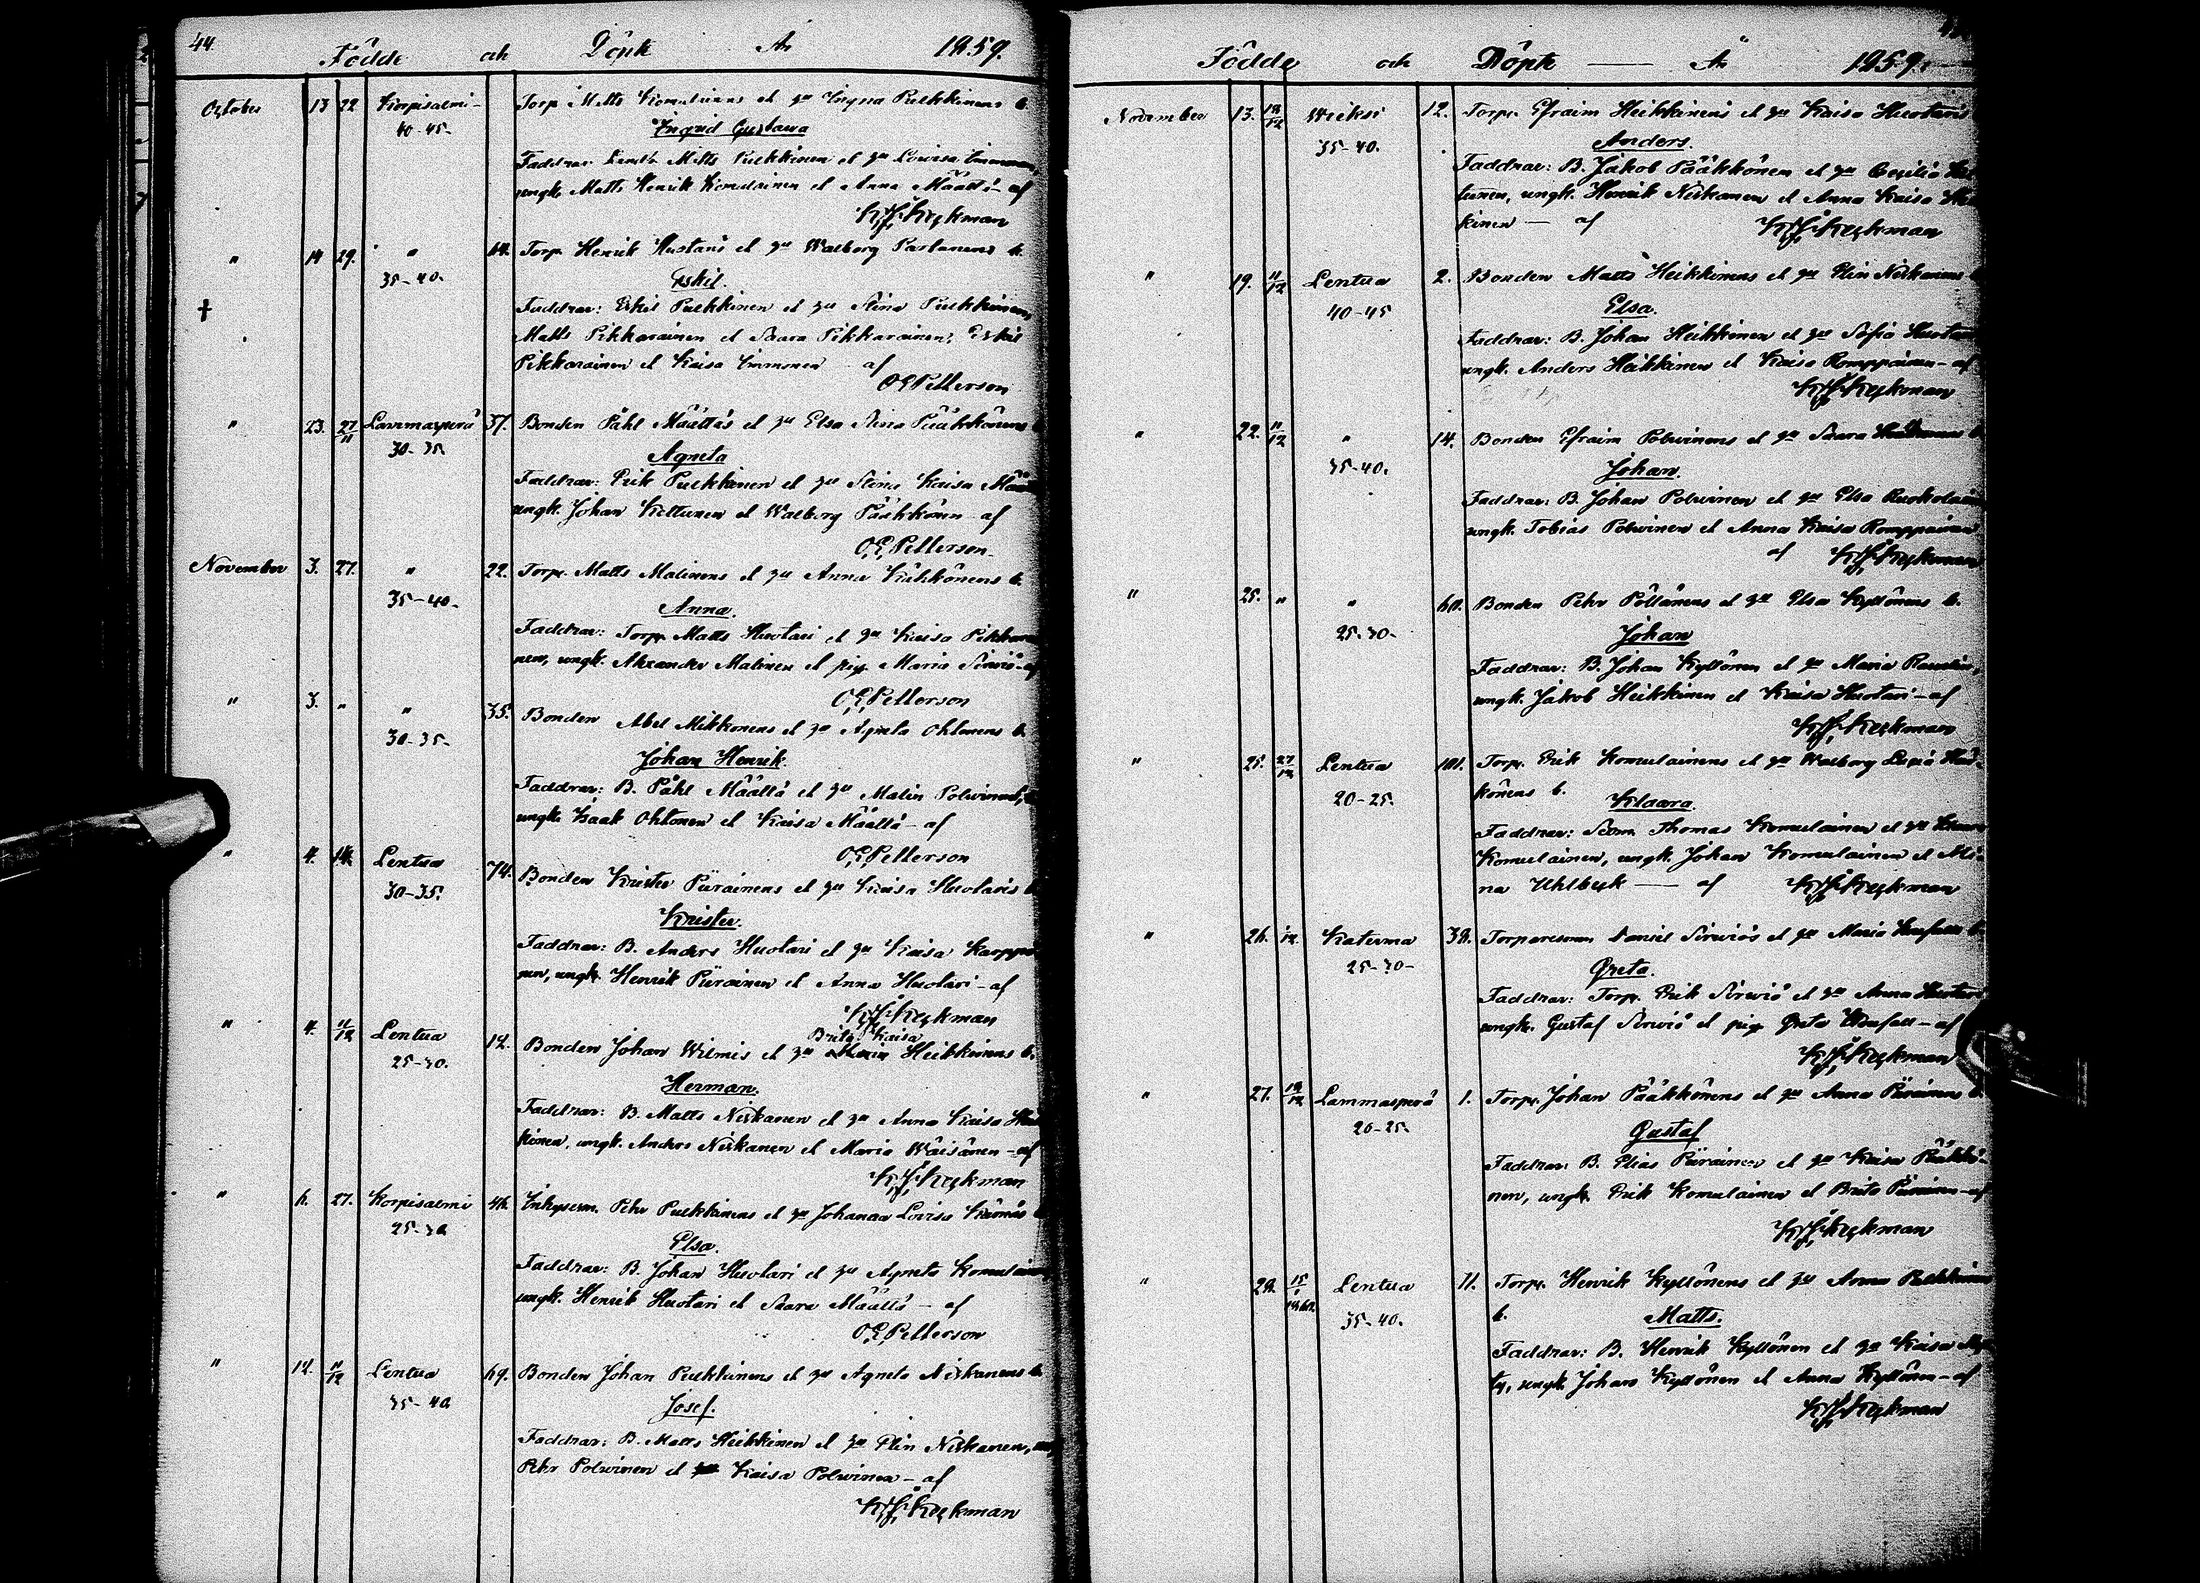 44.
Födde och Döpte År 1859.
October 13 22 Korpisalmi Torp. Matts Komulainens et hu Ingna Pulkkinens b.
40-45. Ingrid Gustava
Faddrar: Matts Pulkkinen et hu Lovisa Immonen,
ungk. Matts Henrik Komulainen et Anna Määttä - af
Keckman
" 14 29. " 14. Torp. Henrik Huotaris et hu Walborg Partanens b.
35-40. Eskil.
† Faddrar: Eskil Pulkkinen et hu Stina Pulkkinen,
Matts Pikkarainen et Saara Pikkarainen, Eskil
Pikkarainen et Kaisa Immonen af
O.E. Petterson
" 23. 27/11 Lammasperä 37. Bonden Påhl Määttäs et hu Elsa Stina Pääkkönens
30-35. Agneta
Faddrar: Erik Pulkkinen et hu Stina Kaisa
ungk. Johan Keltunen et Walborg Pääkkönen af
O.E. Petterson
November 3. 27. " 22. Torp. Matts Malinens et hu Anna Kähkönens b.
35-40. Anna.
Faddrar: Torp. Matts Huotari et hu Kaisa Pikkarai
nen, ungk. Alexander Malinen et pig. Maria Sirviö - af
O.E. Petterson
" 3. " " 35. Bonden Abel Mikkonens et hu Agneta Ohtonens b.
30-35. Johan Henrik.
Faddrar: B. Påhl Määttä et hu Malin Polvinen,
ungk. Isaak Ohtonen et Kaisa Määttä - af
O.E. Petterson
" 4. Lentua 74. Bonden Krister Piirainens et hu Kaisa Huotaris b.
30-35. Krister.
Faddrar: B. Anders Huotari et hu Kaisa Karppi
nen, ungk. Henrik Piirainen et Anna Huotari - af
Keckman
Brita Kaisa
" 4. 11/12 Lentua 12. Bonden Johan Wilmis et hu Heikkinens b.
25-30. Herman.
Faddrar: B. Matts Niskanen et hu Anna Kaisa
kinen, ungk. Anders Niskanen et Maria Wäisänen - af
Keckman
" 6. 27. Korpisalmi 46. Inhysesm. Pehr Pulkkinens et hu Johanna Lovisa
25-30 Elsa.
Faddrar: B. Johan Huotari et hu Agneta Komulainen
ungk. Henrik Huotari et Saara Määttä - af
O.E. Petterson
" 12. 11/12 Lentua 69. Bonden Johan Pulkkinens et hu Agneta Niskanens b.
35-40 Josef.
Faddrar: B. Matts Heikkinen et hu Elin Niskanen,
Pehr Polvinen et Kaisa Polvinen - af
Keckman
Födde och Döpte År 1859.
November 13. 18/12 Wieksi 12. Torp. Efraim Heikkinens et hu Kaisa Huotaris
35-40. Anders.
Faddrar: B. Jakob Pääkkönen et hu Cecilia
tunen, ungk. Henrik Niskanen et Anna Kaisa
kinen — af Keckman
" 19. 11/12 Lentua 2. Bonden Matts Heikkinens et hu Elin Niskanens b.
40-45 Elsa.
Faddrar: B. Johan Heikkinen et hu Sofia Huotari
ungk. Anders Heikkinen et Kaisa Romppainen - af
Keckman
" 22. 11/12 " 14. Bonden Efraim Polvinens et hu Saara b.
35-40. Johan.
Faddrar: B. Johan Polvinen et hu Elsa
ungk. Tobias Polvinen et Anna Kaisa Romppainen
af Keckman
" 25. " " 60. Bonden Pehr Pöllänens et hu Elsa Kyllönens b.
25-30. Johan
Faddrar: B. Johan Kyllönen et hu Maria
ungk. Jakob Heikkinen et Kaisa Huotari - af
Keckman
" 25. 27/12 Lentua 101. Torp. Erik Komulainens et hu Walborg
20-25. könens b. Klaara.
Faddrar: Thomas Komulainen et hu
Komulainen, ungk. Johan Komulainen et Mi-
na Uhlbeck — af Keckman
" 26. Katerma 38. Torparesonen Daniel Sirviös et hu Maria b.
25-30- Greta.
Faddrar: Torp. Erik Sirviö et hu Anna Huotari
ungk. Gustaf Sirviö et pig. Greta - af
Keckman
" 27. 18/12 Lammasperä 1. Torp. Johan Pääkkönens et hu Anna Piirainens b.
20-25. Gustaf
Faddrar: B. Elias Piirainen et hu Kaisa Pääkkö-
nen, ungk. Erik Komulainen et Brita Piirainen - af
Keckman
" 28. 15/1 1860. Lentua 11. Torp. Henrik Kyllönens et hu Anna Pulkkinens
35-40. b. Matts.
Faddrar: B. Henrik Kyllönen et hu Kaisa
ungk. Johan Kyllönen et Anna Kyllönen - af
Keckman